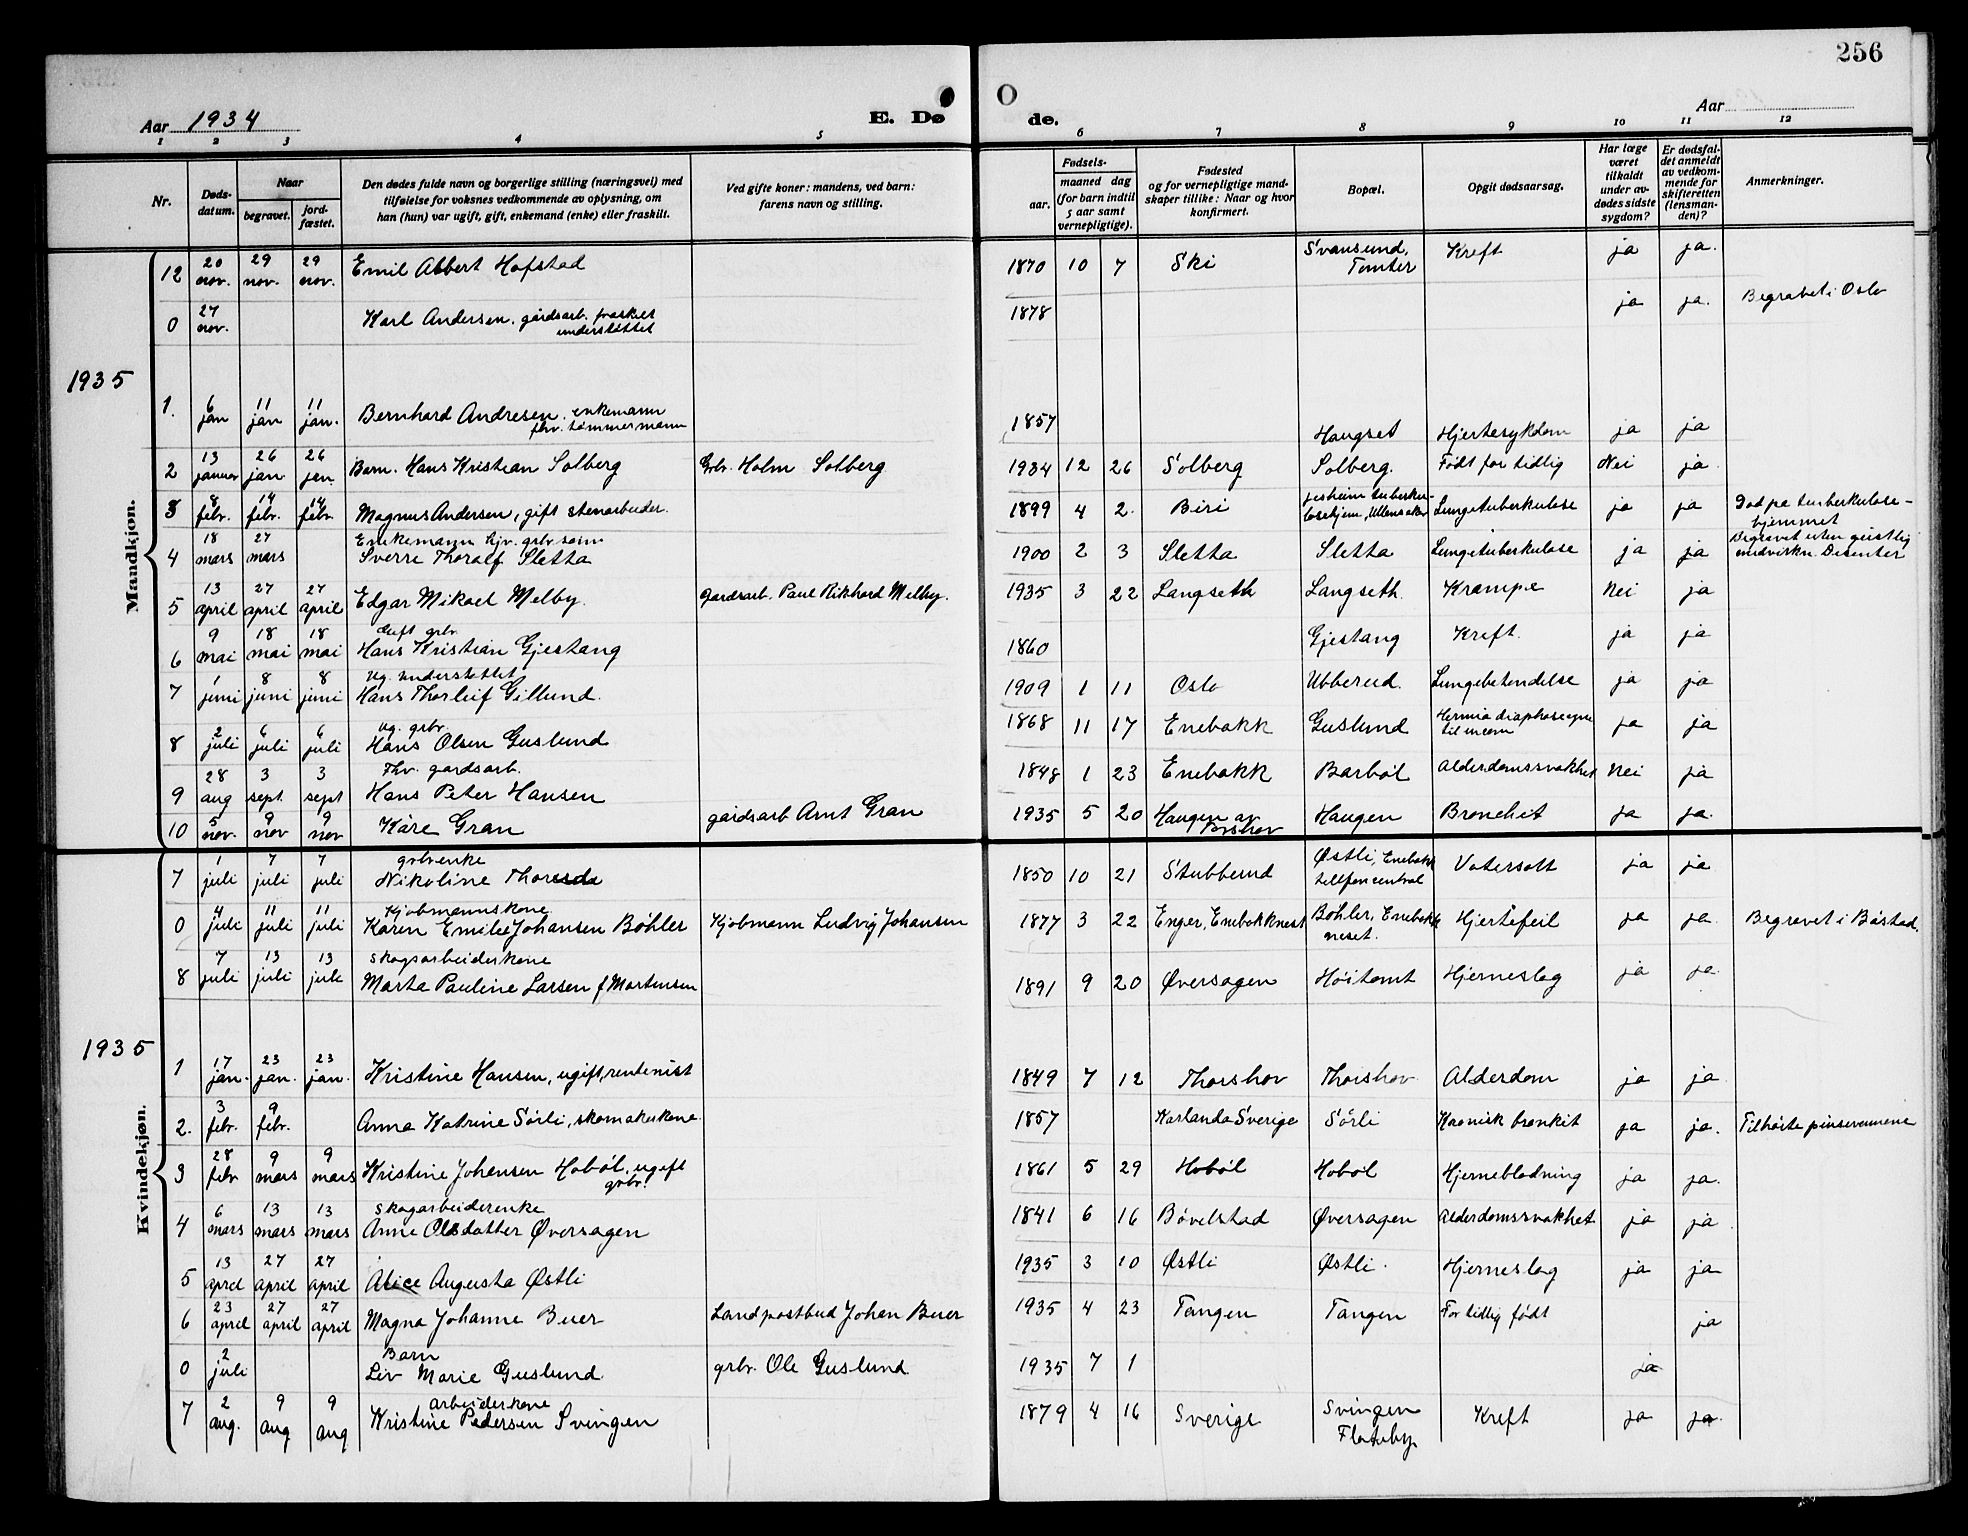 256
Aar 1934
E. Dø
de.
Aar
1 2 3 4 5 6 7 8 9 10 11 12
Nr.
Døds-
datum.
Naar
begravet.
jord-
fæstet.
Den dødes fulde navn og borgerlige stilling (næringsvei) med
tilføielse for voksnes vedkommende av oplysning, om
han (hun) var ugift, gift, enkemand (enke) eller fraskilt.
Ved gifte koner: mandens, ved barn:
farens navn og stilling.
Fødsels-
aar.
maaned dag
(for barn indtil
5 aar samt
vernepligtige).
Fødested
og for vernepligtige mand-
skaper tillike: Naar og hvor
konfirmert.
Bopæl.
Opgit dødsaarsag.
Har læge
været
tilkaldt
under av-
dødes sidste
sygdom?
Er dødsfal-
det anmeldt
av vedkom-
mende for
skifteretten
(lensman-
den)?
Anmerkninger.
Mandkjøn.
12 20 nov. 29 nov. 29 nov. Emil Albert Hofstad 1870 10 7 Ski Svansund, Tomter Kreft ja ja.
0 27 nov. Karl Andersen. gårdsarb. fraskilt understøttet 1878 ja ja. Begravet i Oslo
1935
1. 6 jan 11 jan 11 jan. Bernhard Andresen. enkemann fhv. tømmermann 1857 Haugset Hjertesykdom ja ja
2 13 januar 26 jan 26 jan Barn. Hans Kristian Solberg Grbr. Holm Solberg 1934 12 26 Solberg Solberg. Født for tidlig Nei ja
3 8 febr. 14 febr. 14 febr Magnus Andersen, gift stenarbeider. 1899 4 2. Biri Jesheim tuberku- losehjem, Ullensaker Lungetuberkulose ja ja Død på tuberkulose- hjemmet
4 18 mars 27 mars Enkemann hjv. grbr. sønn Sverre Thoralf Sletta 1900 2 3 Sletta Sletta Lungetuberkulose ja ja Begravet uten geistlig medvirkn. Disenter
5 13 april 27 april 27 april Edgar Mikael Melby. gardsarb. Paul Rikhard Melby. 1935 3 22 Langseth Langseth. Krampe Nei ja
6 9 mai 18 mai 18 mai Gift grbr. Hans Kristian Gjestang 1860 Gjestang Kreft. ja ja
7 1 juni 8 juni 8 juni Ug. understøttet Hans Thorleif Gillund. 1909 1 11 Oslo Ubberud. Lungebetendelse ja ja
8 2 juli 6 juli 6 juli Ug. grbr Hans Olsen Guslund 1868 11 17 Enebakk Guslund ja ja
9 28 aug 3 sept. 3 sept Fhv. gardsarb. Hans Peter Hansen 1848 1 23 Enebakk Barbøl Alderdomssvakhet Nei ja
10 5 nov. 9 nov 9 nov Kåre Gran gårdsarb Arnt Gran 1935 5 20 Haugen av Haugen Bronchit ja ja.
Kvindekjøn.
7 1 juli 7 juli 7 juli grbr.enke Nikoline 1850 10 21 Stubberud Østli, Enebakk tellfoncentral Vatersott ja ja
0 4 juli 11 juli 11 juli Kjøbmannskone Karen Emilie Johansen Bøhler Kjøbmann Ludvig Johansen 1877 3 22 Enger, Enebakkneset Bøhler, Enebakk neset. Hjertefeil ja ja Begravet i Båstad.
8 7 juli 13 juli 13 juli skogsarbeiderkone Marta Pauline Larsen f Mortensen 1891 9 20 Øversagen Høitomt Hjerneslag ja ja
1935
1 17 jan. 23 jan. 23 jan. Kristine Hansen, ugift, rentenist 1849 7 12 Thorshov Thorshov Alderdom ja ja
2. 3 febr. 9 febr. Anna Katrine Sörli, skomakerkone 1857 Karlanda Sverige Sörli Kronisk bronkit ja ja. Tilhørte pinsevennene
3 28 febr 9 mars 9 mars Kristine Johansen Hobøl, ugift grbr. 1861 5 29 Hobøl Hobøl Hjerneblødning ja ja.
4 6 mars 13 mars 13 mars skogarbeiderenke Anne Olsdatter Øversagen 1841 6 16 Bøvelstad Øversagen Alderdomssvakhet ja ja
5 13 april 27 april 27 april Alice Augusta Østli 1935 3 10 Østli Østli. Hjerneslag ja ja
6 23 april 27 april 27 april Magna Johanne Buer Landpostbud Johan Buer 1935 4 23 Tangen Tangen For tidlig født ja
0 2 juli Barn Liv Marie Guslund grbr. Ole Guslund 1935 7 1 ja
7 2 aug. 9 aug 9 aug arbeiderkone Kristine Pedersen Svingen 1879 4 16 Sverige Svingen Flateby Kreft ja ja